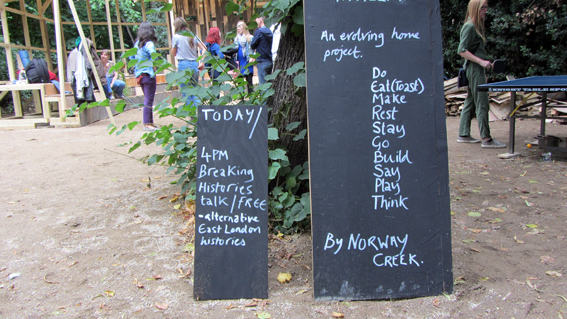 TODAY/
4PM
Breaking
Histories
talk/FREE
-alternative
East London
histories
An evolving home
project.
Do
Eat(Toast)
Make
Rest
Stay
Go
Build
Say
Play
Think
By NORWAY
CREEK.